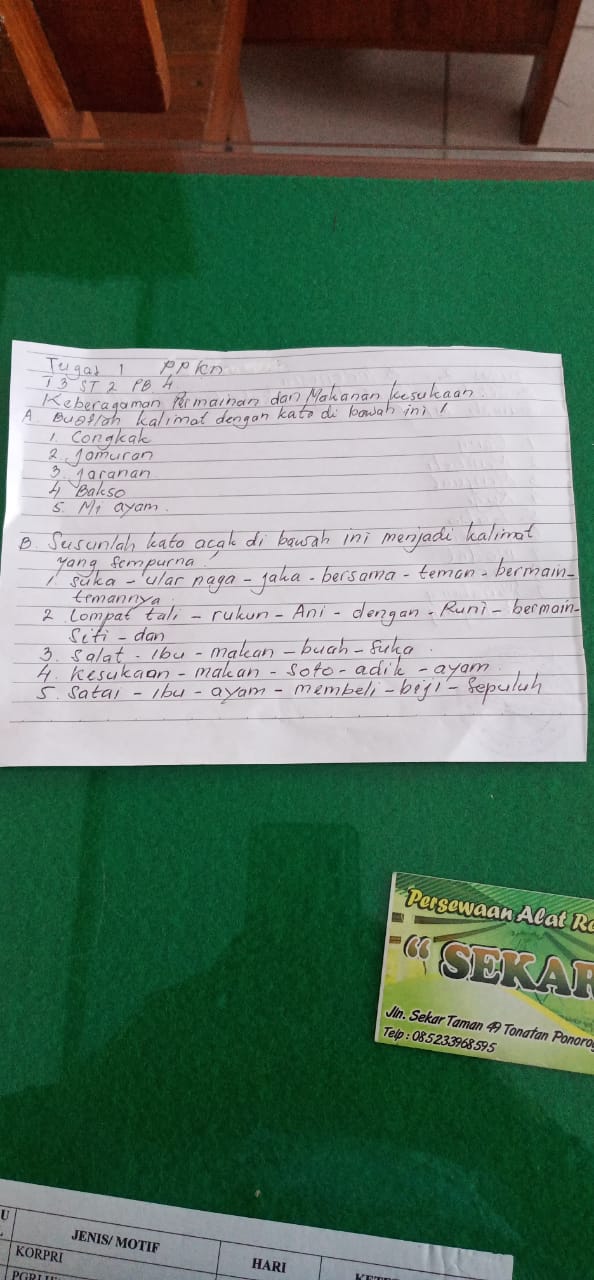 Tugas 1 PPKn
T 3 ST 2 PB 4
Keberagaman Permainan dan Makanan kesukaan.
A. Buatlah kalimat dengan kata di bawah ini !
1. Congkak
2. Jamuran
3. Jaranan
4. Bakso
5. Mi ayam.
B. Susunlah kata acak di bawah ini menjadi kalimat
yang sempurna !
1. suka - ular naga - jaka - bersama - teman - bermain -
temannya
2. Lompat tali - rukun - Ani - dengan - Runi - bermain -
Siti - dan
3. Salat - ibu - makan - buah - suka.
4. Kesukaan - makan - soto - adik - ayam.
5. Satai - ibu - ayam - membeli - biji - sepuluh
Persewaan Alat
"SEKAR
Jln. Sekar Taman 49 Tonatan
Telp : 085233968595
JENIS/ MOTIF
HARI
KORPRI